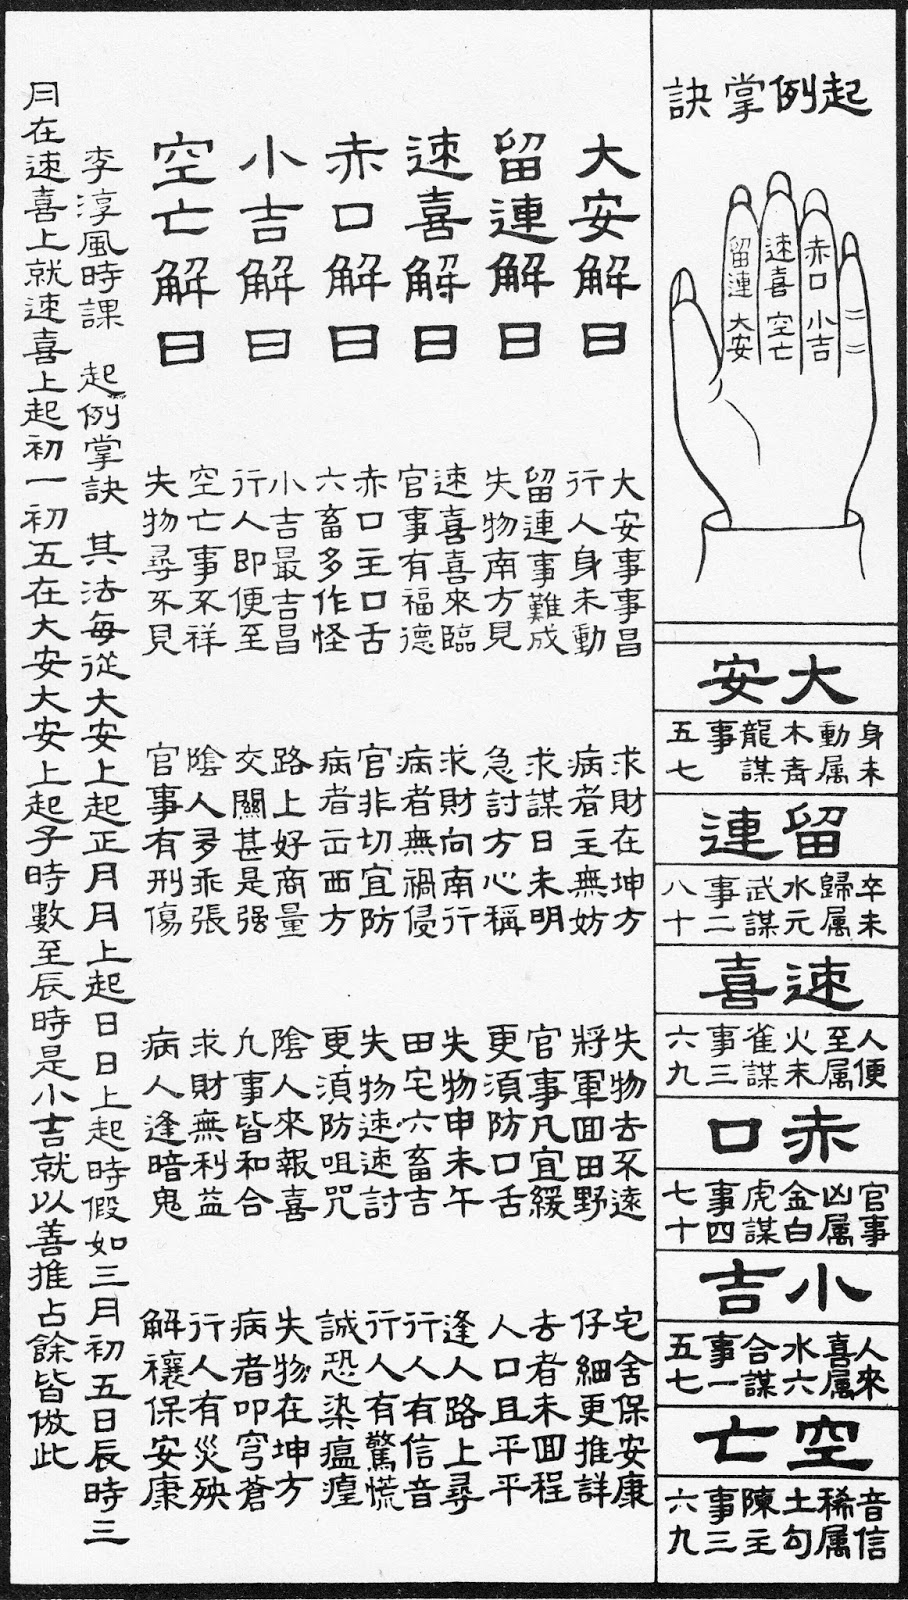 起例掌訣
赤口 小吉
速喜 空亡
留連 大安
大安
身未
動属
木青
龍謀
事
五七
留連
卒未
歸属
水元
武謀
事二
八十
速喜
人便
至属
火未
雀謀
事三
六九
赤口
官事
凶属
金白
虎謀
事四
七十
小吉
人來
喜属
水六
合謀
事一
五七
空亡
音信
稀属
土句
陳主
事三
六九
大安解曰
大安事事昌 求財在坤方 失物去不遠 宅舍保安康
行人身未動 病者主無妨 將軍囬田野 仔細更推詳
留連解曰
留連事難成 求謀日未明 官事凡宜緩 去者未囬程
失物南方見 急討方心稱 更須防口舌 人口且平平
速喜解曰
速喜喜來臨 求財向南行 失物申未午 逢人路上尋
官事有福德 病者無禍侵 田宅六畜吉 行人有信音
赤口解曰
赤口主口舌 官非切宜防 失物速速討 行人有驚慌
六畜多作怪 病者出西方 更須防咀咒 誠恐染瘟㾮
小吉解曰
小吉最吉昌 路上好商量 陰人來報喜 失物在坤方
行人即便至 交關甚是强 凢事皆和合 病者叩穹蒼
空亡解曰
空亡事不祥 陰人多乖張 求財無利益 行人有災殃
失物尋不見 官事有刑傷 病人逢暗鬼 解禳保安康
李淳風時課 起例掌訣 其法每從大安上起正月月上起日日上起時假如三月初五日辰時三
月在速喜上就速喜上起初一初五在大安大安上起子時數至辰時是小吉就以善推占餘皆倣此